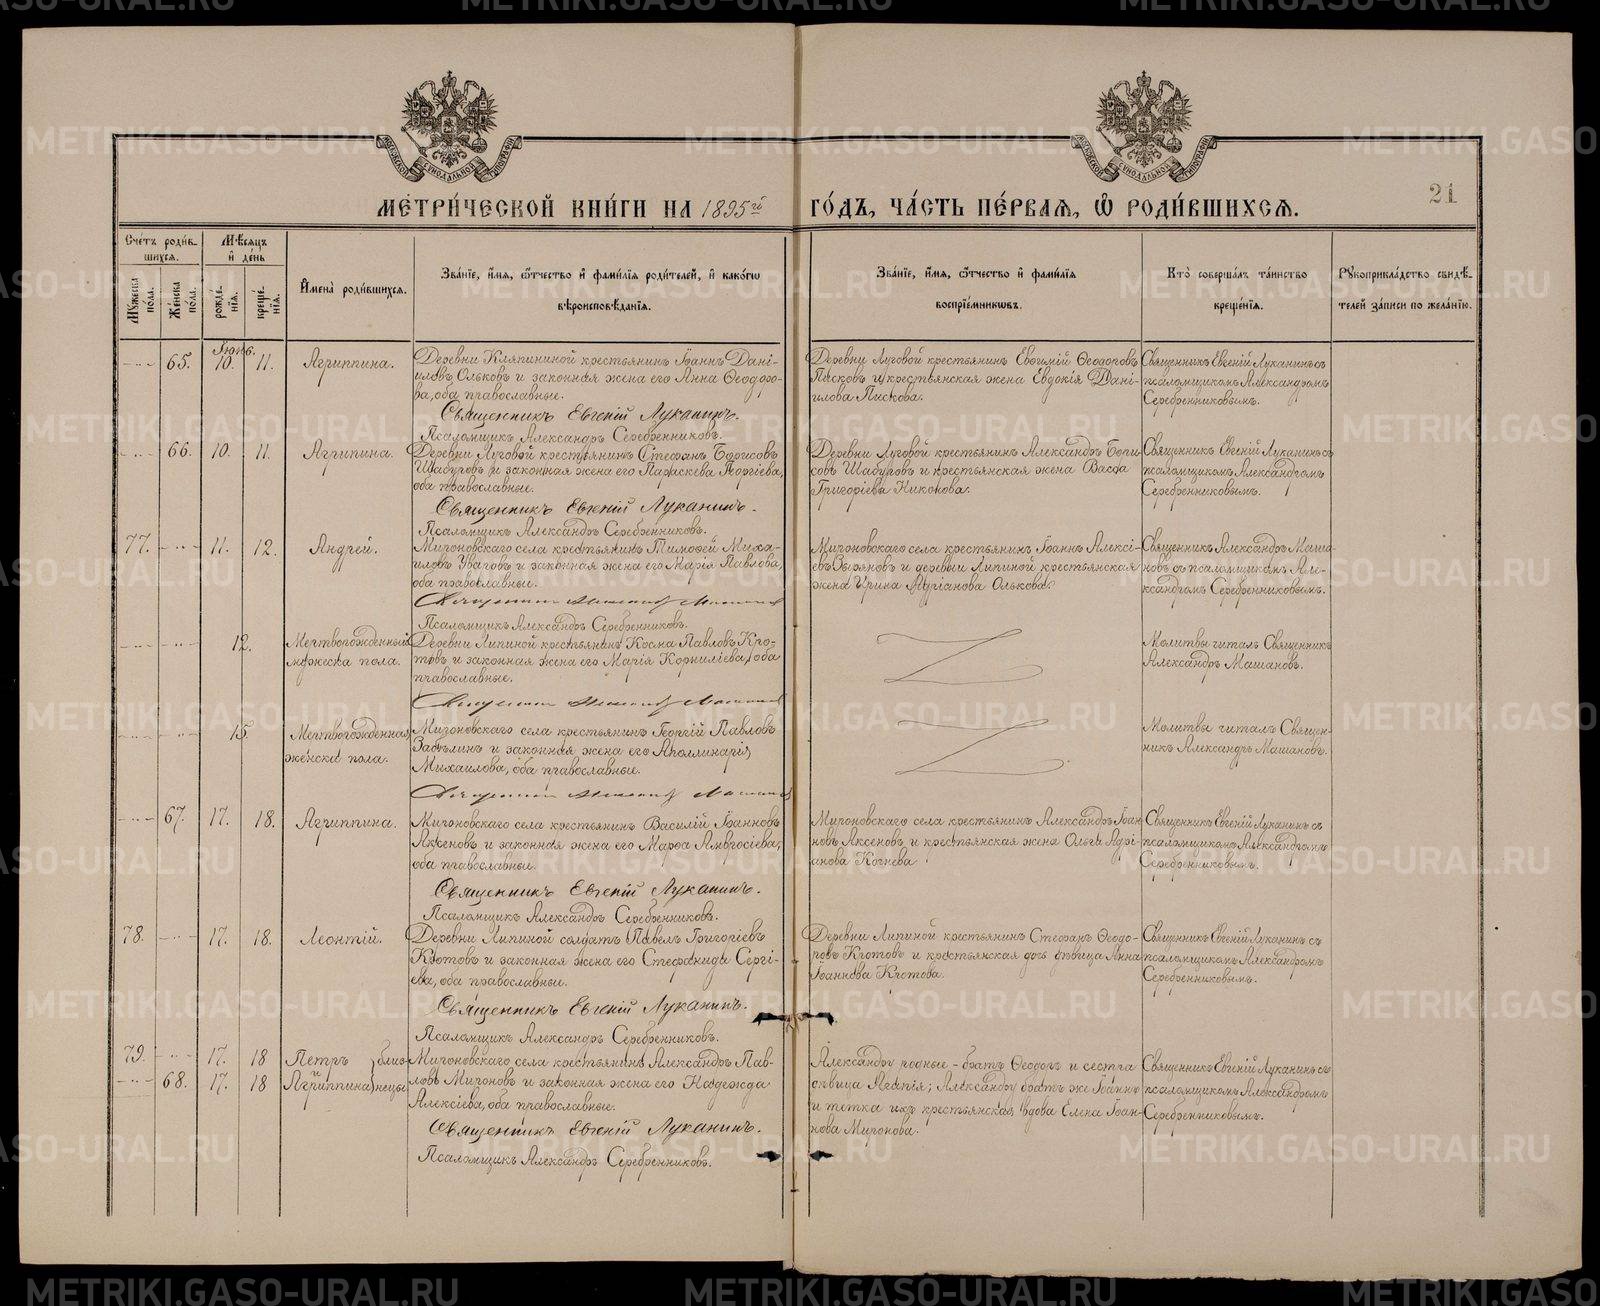 МЕТРИ́ЧЕСКОЙ КНИ́ГИ НА 1895й ГО́ДЪ, ЧА́СТЬ ПЕ́РВАЯ, Ѿ РОДИ́ВШИХСЯ.
21
МОСКОВСКОЙ СѴНОДАЛЬНОЙ ТИПОГРАФІИ
МОСКОВСКОЙ СѴНОДАЛЬНОЙ ТИПОГРАФІИ
Сче́тъ роди́в-
шихся.
Му́жеска пола.
Же́нска пола.
Мѣ́сяцъ и де́нь
рожде́-
нія.
креще́-
нія.
И́мена роди́вшихся.
Зва́ніе, и́мя, ѻ́тчество и фами́лія роди́телей, и како́гѡ
вѣроисповѣ́данія.
Зва́ніе, и́мя, ѻ́тчество и фами́лія
воспріе́мникѡвъ.
Кто̀ соверша́лъ та́инство
креще́нія.
Рукоприкла́дство свидѣ́-
телей за́писи по жела́нію.
Іюнь.
65. 10. 11. Агриппина.
Деревни Кляпининой крестьянинъ Іоаннъ Дані-
иловъ Ольковъ и законная жена его Анна Ѳеодоро-
ва, оба православные.
Священникъ Евгеній Луканинъ.
Псаломщикъ Александръ Серебренниковъ.
Деревни Луговой крестьянинъ Евѳимій Ѳеодоровъ
Писковъ и крестьянская жена Евдокія Дані-
илова Пискова.
Священникъ Евгеній Луканинъ съ
псаломщикомъ Александромъ
Серебренниковымъ.
66. 10. 11. Агрипина.
Деревни Луговой крестьянинъ Стефанъ Борисовъ
Шабуровъ и законная жена его Параскева Георгіева,
оба православные.
Священникъ Евгеній Луканинъ.
Псаломщикъ Александръ Серебренниковъ.
Деревни Луговой крестьянинъ Александръ Бори-
совъ Шабуровъ и крестьянская жена Васса
Григоріева Никонова.
Священникъ Евгеній Луканинъ съ
псаломщикомъ Александромъ
Серебренниковымъ.
77. 11. 12. Андрей.
Мироновскаго села крестьянинъ Тимоѳей Миха-
иловъ Уваговъ и законная жена его Марія Павлова,
оба православные.
Священникъ Александръ Машановъ
Псаломщикъ Александръ Серебренниковъ.
Мироновскаго села крестьянинъ Іоаннъ Алексі-
евъ и деревни Липиной крестьянская
жена Ирина Адріанова Олькова.
Священникъ Александръ Маша-
новъ съ псаломщикомъ Але-
ксандромъ Серебренниковымъ.
12. Мертворожденный
мужеска пола.
Деревни Липиной крестьянинъ Косма Павловъ Кро-
товъ и законная жена его Марія Корниліева, оба
православные.
Священникъ Александръ Машановъ
Молитвы читалъ Священникъ
Александръ Машановъ.
15. Мертворожденная
женска пола.
Мироновскаго села крестьянинъ Георгій Павловъ
Забѣлинъ и законная жена его Аполлинарія
Михаилова, оба православные.
Священникъ Александръ Машановъ
Молитвы читалъ Священ-
никъ Александръ Машановъ.
67. 17. 18. Агриппина.
Мироновскаго села крестьянинъ Василій Іоанновъ
Аксеновъ и законная жена его Марѳа Амвросіева,
оба православные.
Священникъ Евгеній Луканинъ.
Псаломщикъ Александръ Серебренниковъ.
Мироновскаго села крестьянинъ Александръ Іоан-
новъ Аксеновъ и крестьянская жена Ольга Адрі-
анова Кочнева
Священникъ Евгеній Луканинъ съ
псаломщикомъ Александромъ
Серебренниковымъ.
78. 17. 18. Леонтій.
Деревни Липиной солдатъ Павелъ Григоріевъ
Кротовъ и законная жена его Стефанида Сергі-
ева, оба православные.
Священникъ Евгеній Луканинъ.
Псаломщикъ Александръ Серебренниковъ.
Деревни Липиной крестьянинъ Стефанъ Ѳеодо-
ровъ Кротовъ и крестьянская дочь дѣвица Анна
Іоаннова Кротова.
Священникъ Евгеній Луканинъ съ
псаломщикомъ Александромъ
Серебренниковымъ.
79. 17. 18 Петръ и близ-
68. 17. 18 Агриппина нецы
Мироновскаго села крестьянинъ Александръ Пав-
ловъ Мироновъ и законная жена его Надежда
Алексіева, оба православные.
Священникъ Евгеній Луканинъ.
Псаломщикъ Александръ Серебренниковъ.
Александру родные - братъ Ѳеодоръ и сестра
дѣвица; Александру братъ же Іоаннъ
и тетка ихъ крестьянская вдова Елена Іоан-
нова Миронова.
Священникъ Евгеній Луканинъ съ
псаломщикомъ Александромъ
Серебренниковымъ.
METRIKI.GASO-URAL.RU